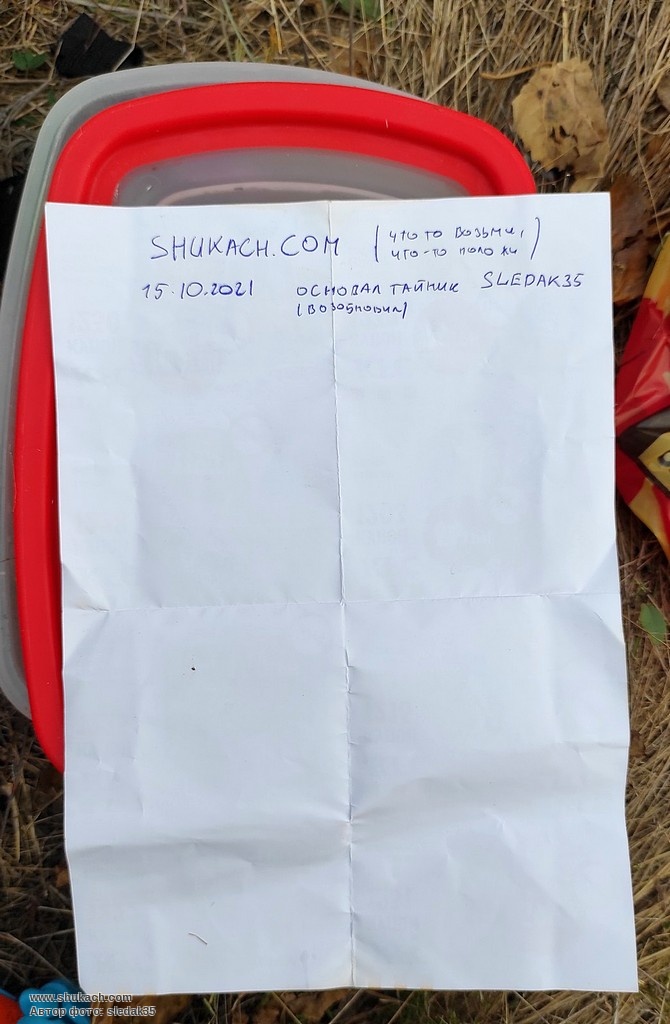 SHUKACH.COM (что то возьми,
что-то положи)
15.10.2021 основал тайник SLEDAK35
(возобновил)
www.shukach.com
Автор фото: sledak35